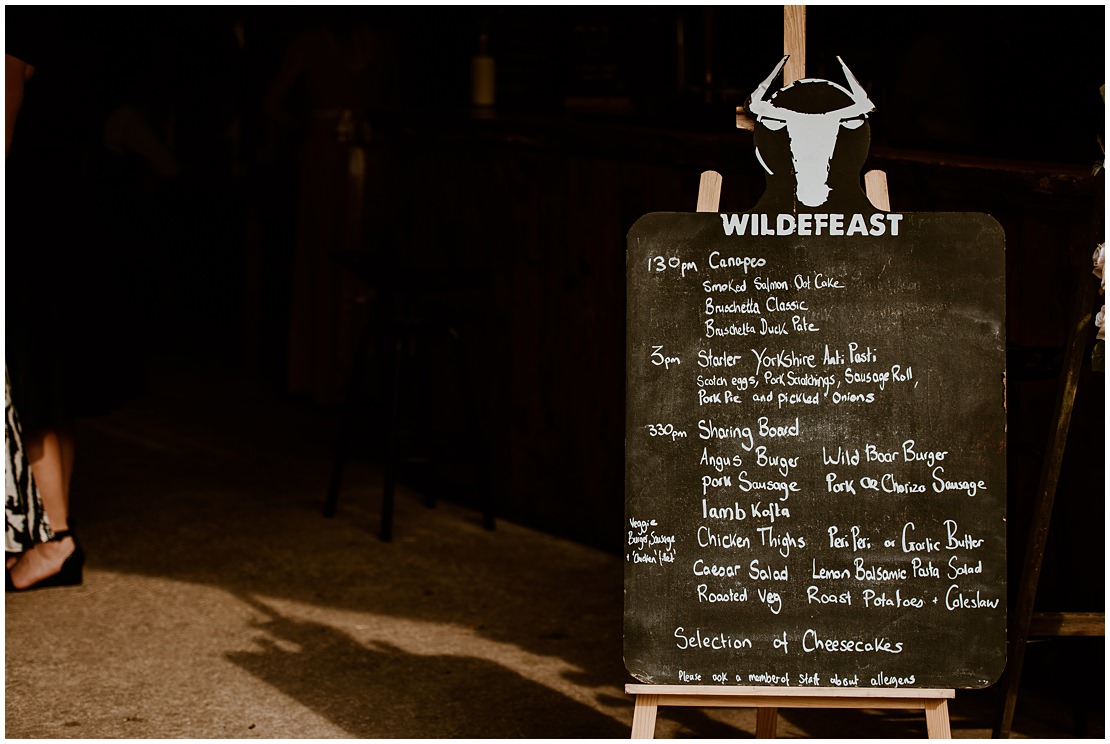 WILDEFEAST
130pm Canapes
Smoked Salmon Oat Cake
Bruschetta Classic
Bruschetta Duck Pate
3pm Starter Yorkshire Anti Pasti
Scotch eggs, Pork Scratchings, Sausage Roll,
Pork Pie and pickled Onions
330pm Sharing Board
Angus Burger Wild Boar Burger
pork Sausage Pork OR Chorizo Sausage
lamb Kofta
Veggie
Burger, Sausage
+ 'Chicken' fillet
Chicken Thighs Peri Peri or Garlic Butter
Caesar Salad Lemon Balsamic Pasta Salad
Roasted Veg Roast Potatoes + Coleslaw
Selection of Cheesecakes
Please ask a member of staff about allergens